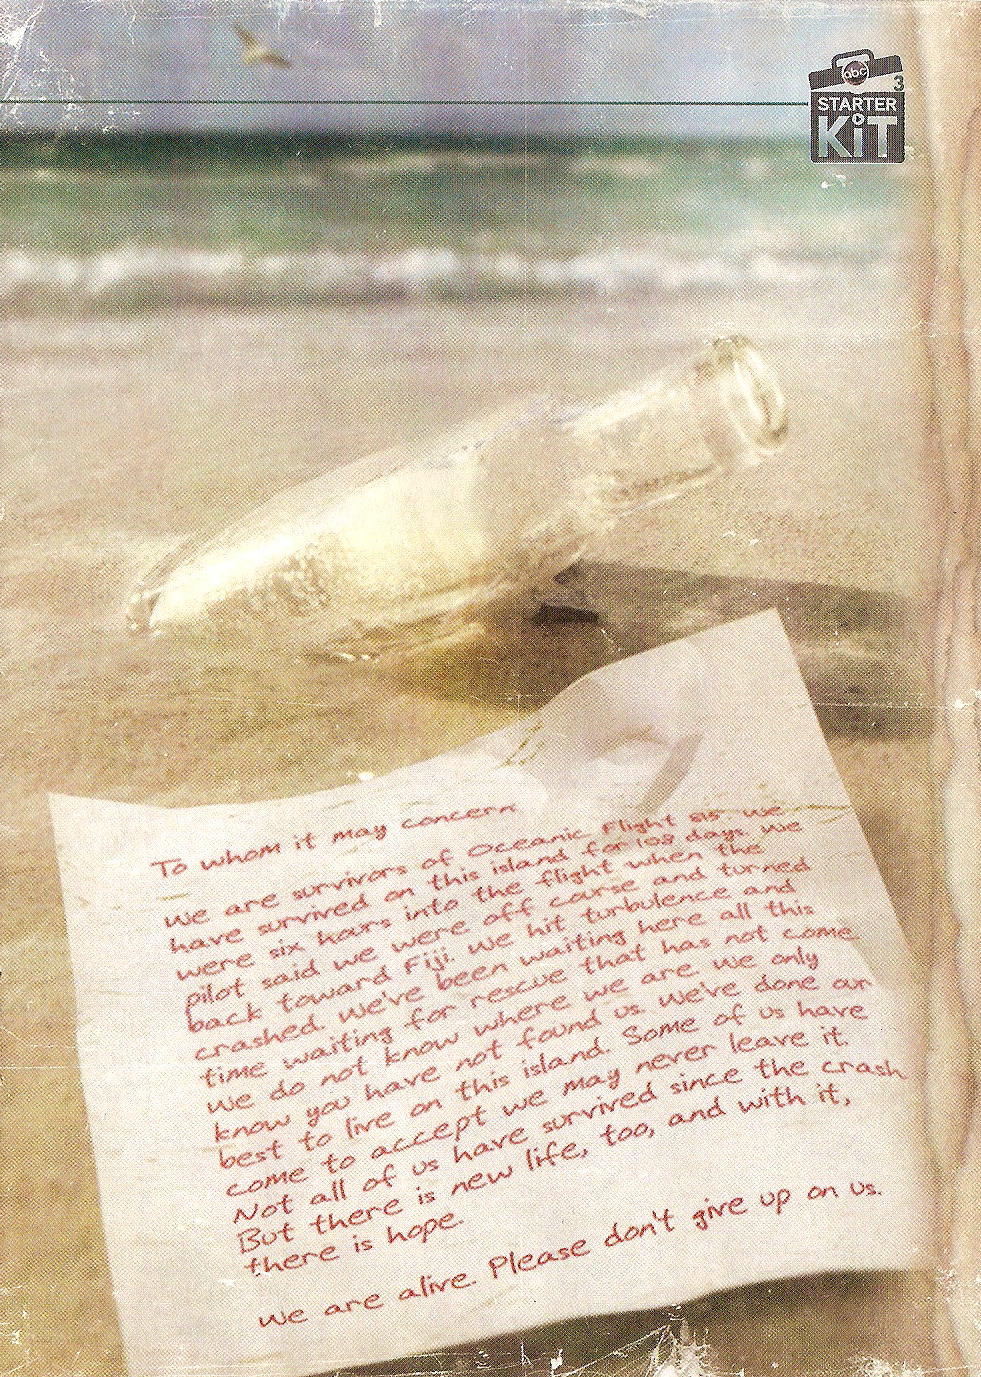 abc
3
STARTER
KiT
To whom it may concern
We are survivors of Oceanic Flight 815. We
have survived on this island for 108 days. We
were six hours into the flight when the
pilot said we were off course and turned
back toward Fiji. We hit turbulence and
crashed. We've been waiting here all this
time waiting for rescue that has not come.
We do not know where we are. We only
know you have not found us. We've done our
best to live on this island. Some of us have
come to accept we may never leave it.
Not all of us have survived since the crash.
But there is new life, too, and with it,
there is hope.
We are alive. Please don't give up on us.